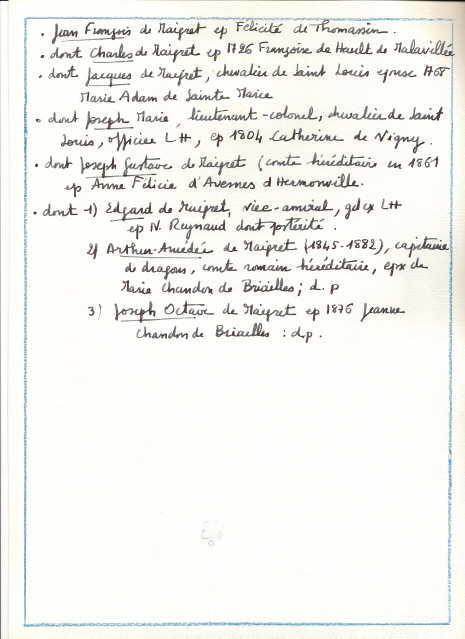 . Jean François de Maigret ep Félicité de Thomassin.
. dont Charles de Maigret ep 1726 Françoise de Hault de Malavillée
. dont Jacques de Maigret, chevalier de Saint Louis epouse 1768
Marie Adam de Sainte Marie
. dont Joseph Marie, lieutenant-colonel, chevalier de Saint
Louis, officier L.H, ep 1804 Catherine de Vigny.
. dont Joseph Gustave de Maigret (comte héréditaire en 1861
ep Anne Félicie d'Avesnes d'Hermonville.
. dont 1) Edgard de Maigret, vice-amiral, gd cx LH
ep N. Reynaud dont postérité.
2) Arthur-Amédée de Maigret (1845-1882), capitaine
de dragons, comte romain héréditaire, epx de
Marie Chandon de Briailles; d.p
3) Joseph Octave de Maigret ep 1876 Jeanne
Chandon de Briailles : d.p.